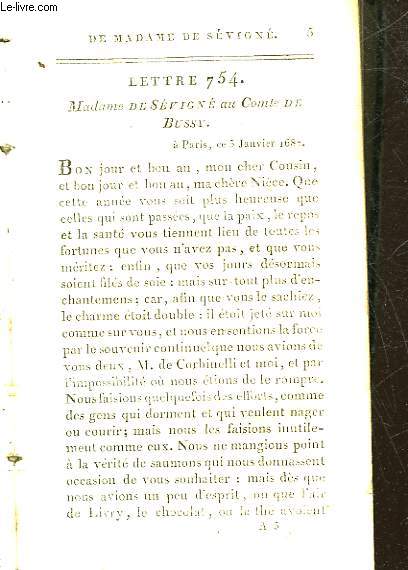 Le-livre.com
DE MADAME DE SÉVIGNÉ. 5
LETTRE 754.
Madame DE SÉVIGNÉ au Comte DE
BUSSY.
à Paris, ce 5 Janvier 1687.
BON jour et bon au, mon cher Cousin,
et bon jour et bon au, ma chère Nièce. Que
cette année vous soit plus heureuse que
celles qui sont passées, que la paix, le repos
et la santé vous tiennent lieu de toutes les
fortunes que vous n'avez pas, et que vous
méritez; enfin, que vos jours désormais
soient filés de soie: mais sur-tout plus d'en-
chantemens; car, afin que vous le sachiez,
le charme étoit double: il étoit jeté sur moi
comme sur vous, et nous en sentions la force
par le souvenir continuel que nous avions de
vous deux, M. de Corbinelli et moi, et par
l'impossibilité où nous étions de le rompre.
Nous faisions quelquefois des efforts, comme
des gens qui dorment et qui veulent nager
ou courir; mais nous les faisions inutile-
ment comme eux. Nous ne mangions point
à la vérité de saumons qui nous donnassent
occasion de vous souhaiter: mais dès que
nous avions un peu d'esprit, ou que l'air
de Livry, le chocolat, ou le thé avoient
A 3